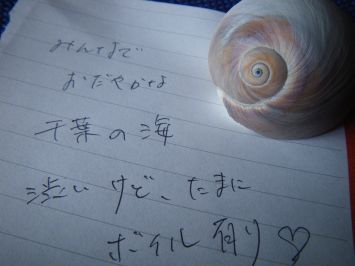 みんなで
おだやかな
千葉の海
渋いけど、たまに
ボイル有り♡